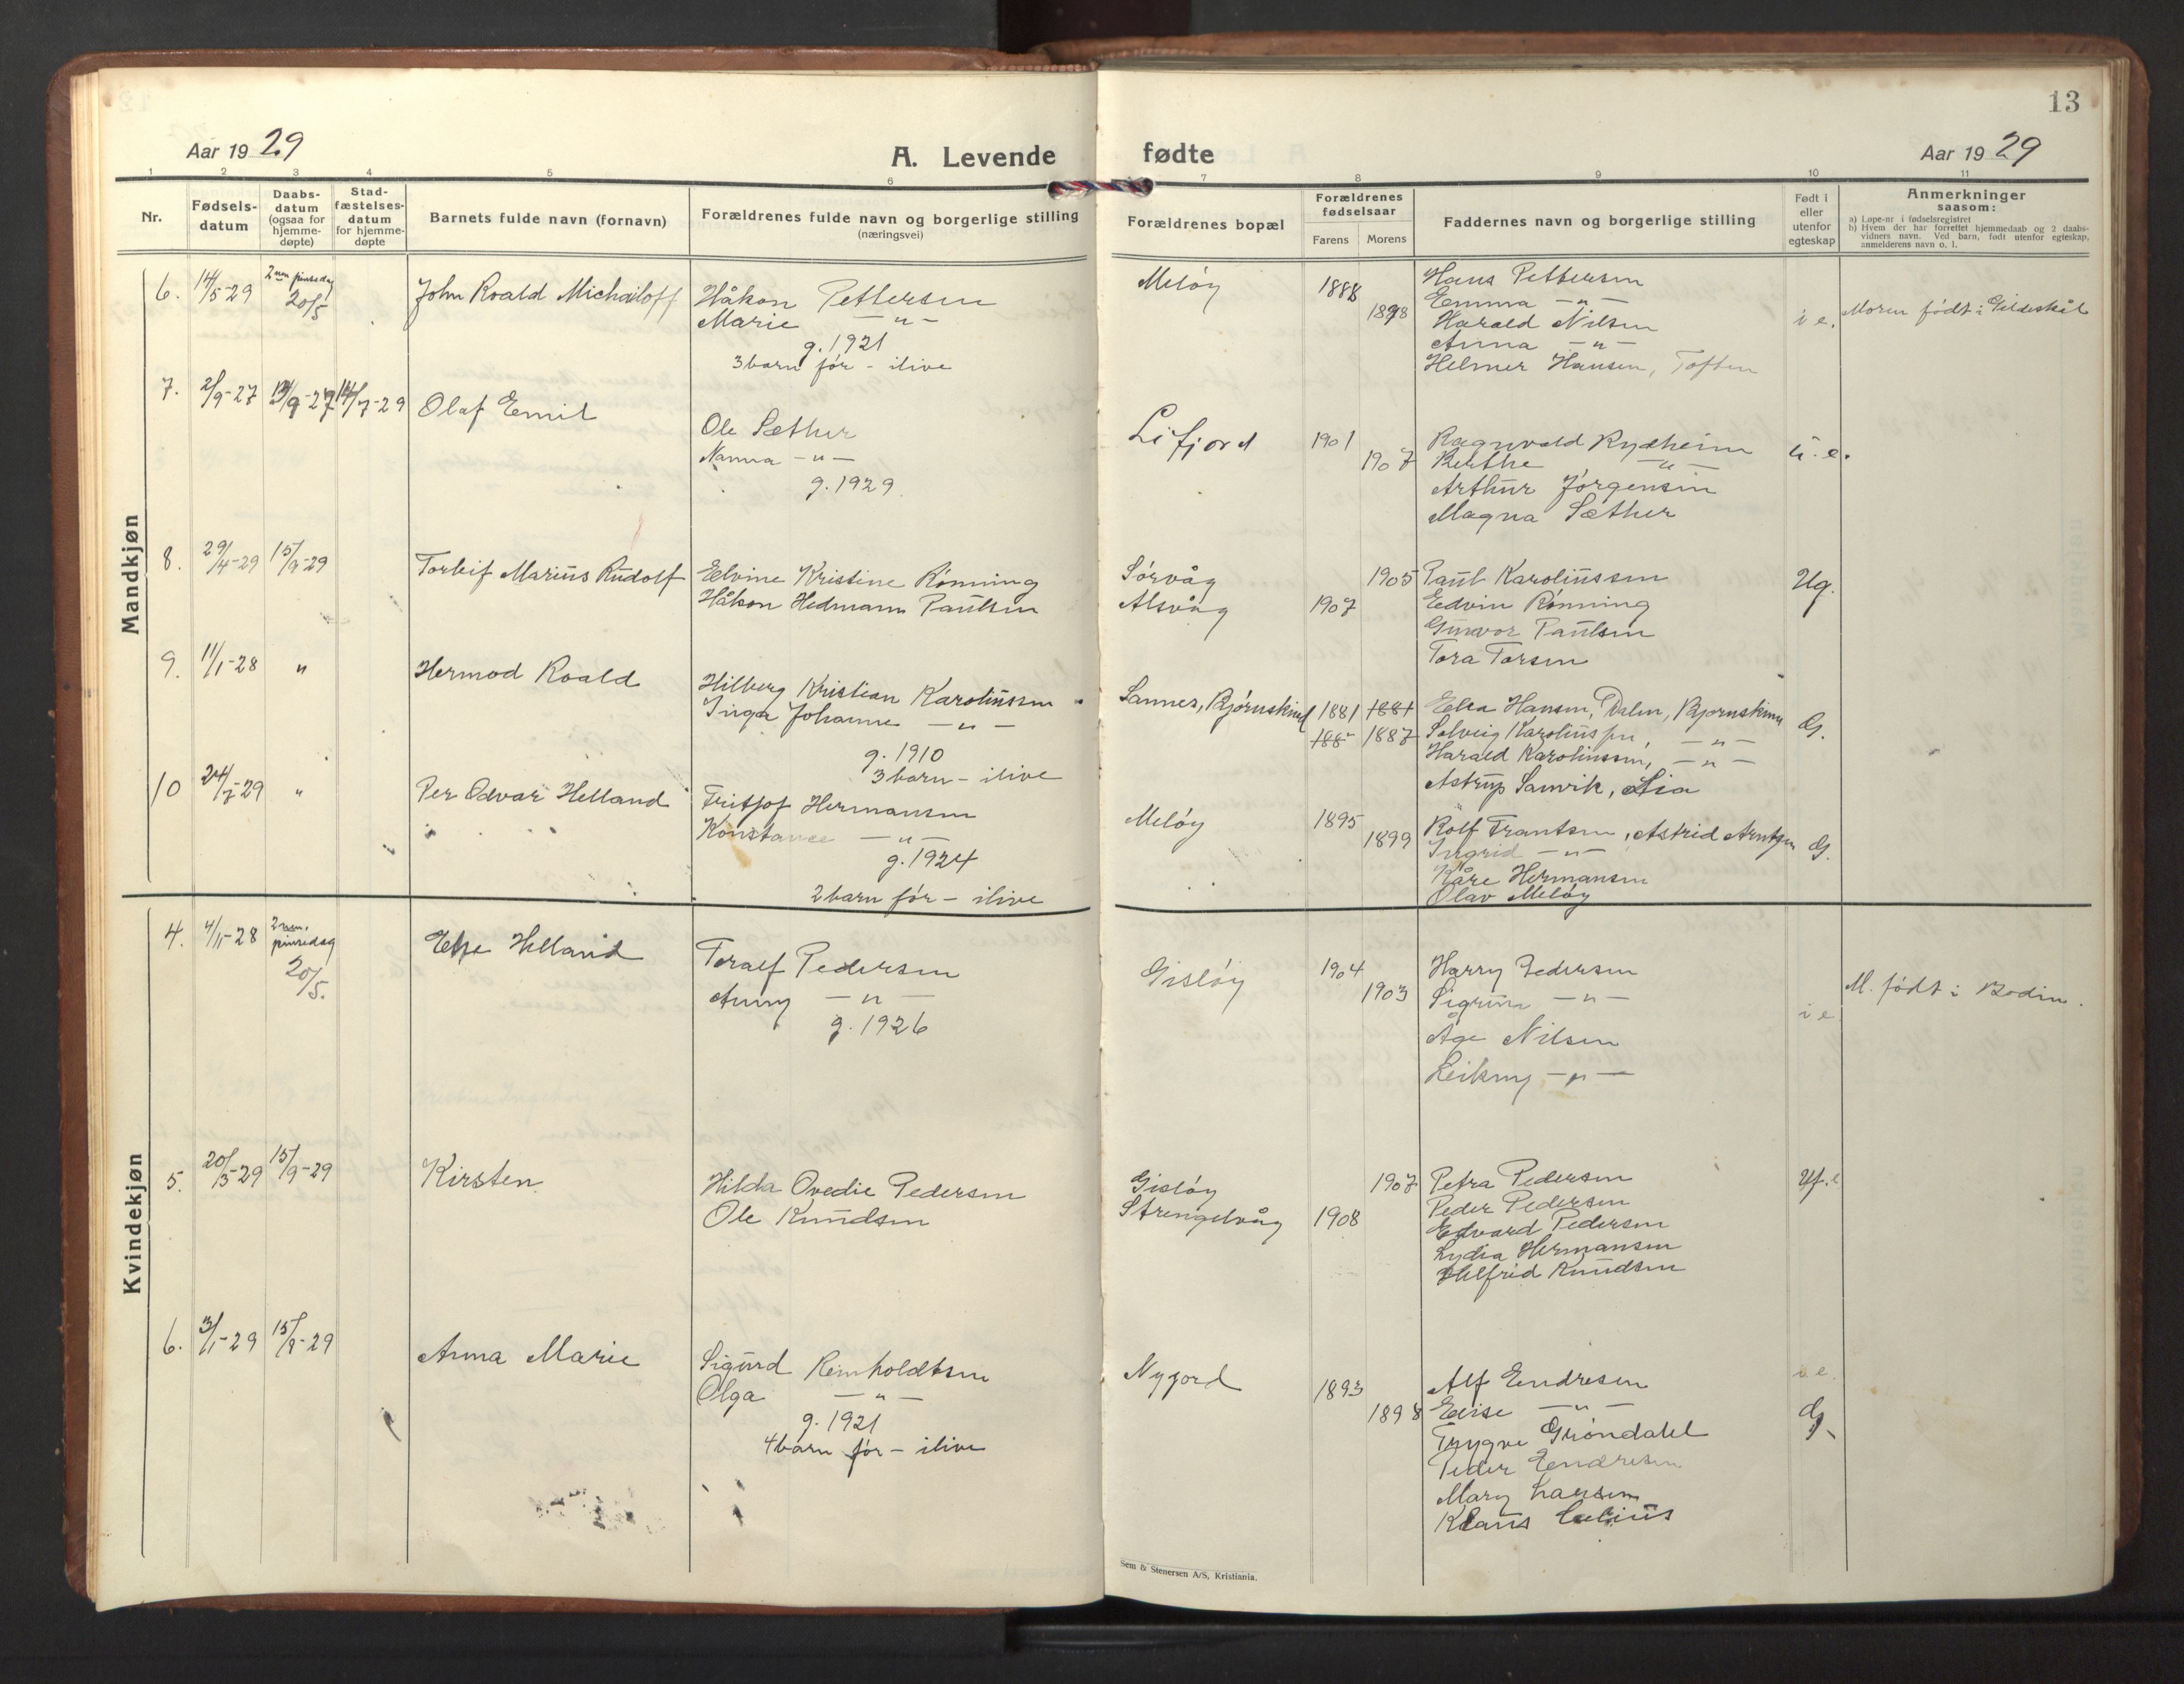 13
Aar 1929
A. Levende fødte
Aar 1929
1 2 3 4 5 6 7 8 9 10 11
Nr.
Fødsels-
datum
Daabs-
datum
(ogsaa for
hjemme-
døpte)
Stad-
fæstelses-
datum
for hjemme-
døpte
Barnets fulde navn (fornavn)
Forældrenes fulde navn og borgerlige stilling
(næringsvei)
Forældrenes bopæl
Forældrenes
fødselsaar
Farens Morens
Faddernes navn og borgerlige stilling
Født i
eller
utenfor
egteskap
Anmerkninger
saasom:
a) Løpe-nr i fødselsregistret
b) Hvem der har forrettet hjemmedaab og 2 daabs-
vidners navn. Ved barn, født utenfor egteskap,
anmelderens navn o. l.
Mandkjøn
6. 14/5-29 2nen pinsedag
20/5
John Roald Michailoff
Håkon Pettersen
Marie —"—
g. 1921
3 barn før - ilive
Meløy
1888
1898
Hans Pettersen
Emma —"—
Harald Nilsen
Anna —"—
Helmer Hansen, Toften
i e.
Moren født i Gildeskål
7. 2/9-27 /9-27 14/7-29
Olaf Emil
Ole Sæther
Nanna —"—
g. 1929
Lifjord
1901
1907
Ragnvald Rydheim
Berthe —"—
Arthur Jørgensen
Magna Sæther
u. e.
8. 29/4-29 15/9-29
Torleif Marius Rudolf
Elvine Kristine Rønning
Håkon Hedmann Paulsen
Sørvåg
Alsvåg
1905
1907
Paul Karolinssen
Edvin Rønning
Gunvor Paulsen
Tora Torsen
Ug.
9. 11/1-28 "
Hermod Roald
Hilberg Kristian Karolinssen
Inga Johanne —"—
g. 1910
3 barn - ilive
Sannes, Bjørnskind
1881 1881
188 1887
Ella Hansen, Dalen, Bjørnskinn
Solveig Karolinssen, —"—
Harald Karolinssen, —"—
Astrup Sanvik, Lia
G.
10 24/7-29 "
Per Odvar Helland
Fritjof Hermansen
Konstance —"—
g. 1924
2 barn før - ilive
Meløy
1895
1899
Rolf Frantsen, Astrid Arntsen
Ingrid —"—
Kåre Hermansen
Olav Meløy
G.
Kvindekjøn
4. 4/11-28 2nen.
pinsedag
20/5.
Helland
Toralf Pedersen
Anny —"—
g. 1926
Gisløy
1904
1903
Harry Pedersen
Sigrun —"—
Åge Nilsen
Leikny —"—
i e
M. født i Bodin.
5. 20/3-29 15/9-29
Kirsten
Hilda Ovedie Pedersen
Ole Knudsen
Gisløy
Strengelvåg
1907
1908
Petra Pedersen
Peder Pedersen
Edvard Pedersen
Lydia Hermansen
Hilfrid Knudsen
Uf. e
6. 3/1-29 15/9-29
Anna Marie
Sigurd Reinholdtsen
Olga —"—
g. 1921
4 barn før - ilive
Nygord
1893
1898
Alf Endresen
Elise —"—
Trygve Grøndahl
Peder Endresen
Mary Larsen
Klaus
i e.
G.
Sem & Stenersen A/S, Kristiania.